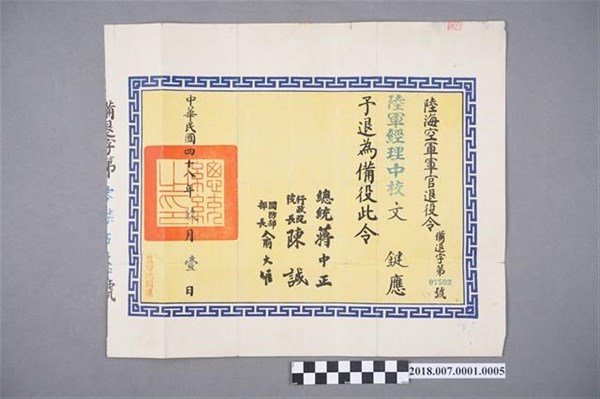 陸海空軍軍官退役令
備退字第
號
陸軍經理中校文鍵應
予退為備役此令
總統蔣中正
行政院
院長陳誠
國防部
部長俞大維
中華民國四十八年 月壹日
總統之印
備退字第
號
2018.007.0001.0005